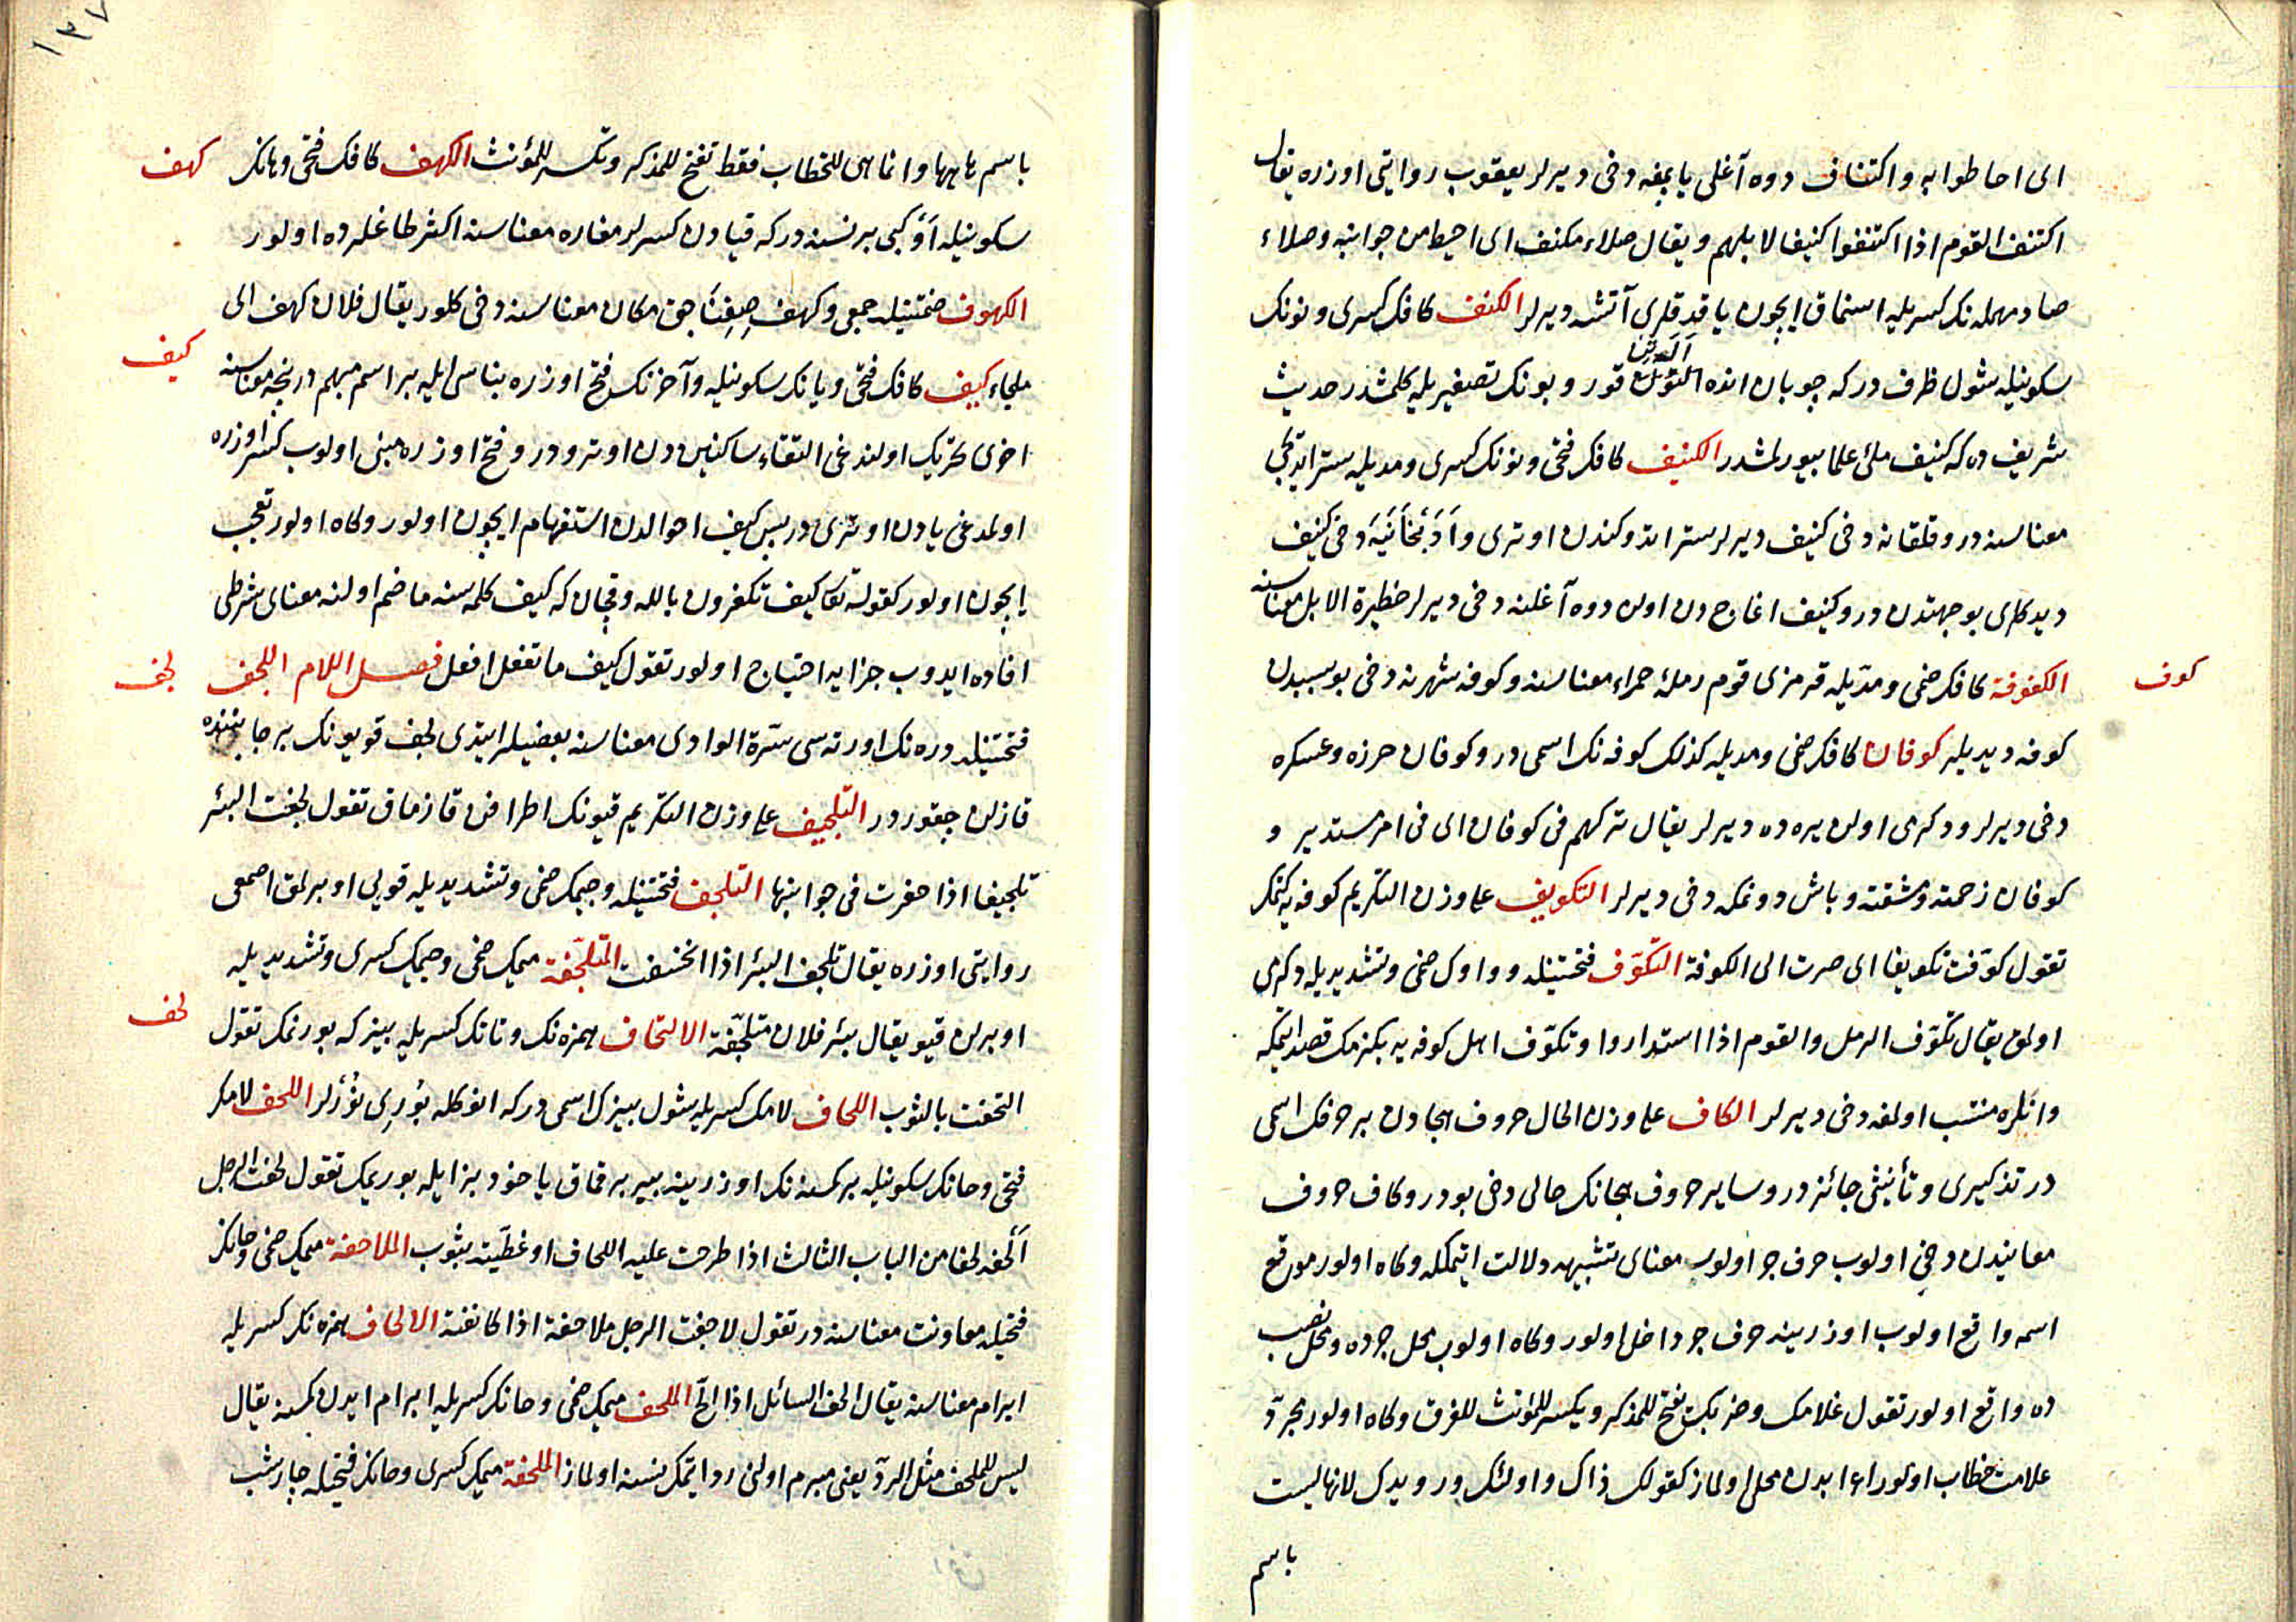 ای احاطوا به و اکتناف دوه آغلی یاپمغه دخی دیرلر یعقوب روایتی اوزره یقال
اکتنف القوم اذا اکتنفوا کنیفا لابلهم ویقال صلاء مکنف ای احیط من جوانبه وصلاء
صاد مهمله نک کسریله اسنماق ایچون یاقدقلری آتشه دیرلر الکنف کافک کسری ونونک
سکونیله شول ظرف درکه چوبان انده قور وبونک تصغیریله کلمشدر حدیث
شریف ده که کنیف ملئ علما بیورلمشدر الکنیف کافک فتحی ونونک کسری ومدیله ستر ایدیجی
معناسنه در وقلقانه دخی کنیف دیرلر ستر اتدوکندن اوتری وادبخانیه دخی کنیف
دیدکلری بوجهتدن در وکنیف اغاج دن اولان دوه آغلنه دخی دیرلر حظیرة الابل معناسنه
کوف
الکوفة کافک ضمی ومدیله قرمزی قوم رملۀ حمراء معناسنه وکوفه شهرنه دخی بوسببدن
کوفه دیدیلر کوفان کافک ضمی ومدیله کذلک کوفه نک اسمی در وکوفان حرزه وعسکره
دخی دیرلر ودکرمی اولان یره ده دیرلر یقال ترکهم فی کوفان ای فی امر مستدیر و
کوفان زحمته ومشقته وباش دونمکه دخی دیرلر التکویف علی وزن التکریم کوفه یه کتمک
تقول کوّفت تکویفا ای صرت الی الکوفة التکوّف فتحتینله وواوک ضمی وتشدیدیله دکرمی
اولمق یقال تکوّف الرمل والقوم اذا استداروا وتکوّف اهل کوفه یه بکزمک قصد ایتمکه
وانلره منتسب اولمغه دخی دیرلر الکاف علی وزن الحال حروف هجادن بر حرفک اسمی
در تذکیری وتأنیثی جائزدر وسایر حروف هجانک حالی دخی بودر وکاف حروف
معانیدن دخی اولوب حرف جر اولور معنای تشبیهه دلالت ایتمکله وکاه اولور موقع
اسمه واقع اولوب اوزرینه حرف جر داخل اولور وکاه اولوب محل جرده ومحل نصب
ده واقع اولور تقول غلامک وضربک تفتح للمذکر ویکسر للمؤنث للفرق وکاه اولور مجرّد
علامت خطاب اولور اعرابدن محلی اولماز کقولک ذاک واولئک ورویدک لانها لیست
باسم
۱۳۷
باسم هاهنا وانما هی للخطاب فقط تفتح للمذکر وتکسر للمؤنث الکهف کافک فتحی وهانک
کهف
سکونیله او کبی بر نسنه درکه قیادن کسرلر مغاره معناسنه اکثر طاغلرده اولور
الکهوف ضمتینله جمعی وکهف صغنه جق مکان معناسنه دخی کلور یقال فلان کهف ای
ملجاء کیف کافک فتحی ویانک سکونیله وآخرنک فتح اوزره بناسی ایله بر اسم مبهم در نیجه معناسنه
کیف
اخری تحریک اولندغی التقاء ساکنین دن اوترودر وفتح اوزره مبنی اولوب کسر اوزره
اولمدغی یادن اوتری در پس کیف احوالدن استفهام ایچون اولور وکاه اولور تعجب
ایچون اولور کقوله تعا کیف تکفرون بالله وقچان که کیف کلمه سنه ما ضم اولنه معنای شرطی
افاده ایدوب جزایه احتیاج اولور تقول کیف ما تفعل افعل فصل اللام اللجف
لجف
فتحتینله دره نک اورته سی سرّة الوادی معناسنه بعضیلر ایتدی لجف قویونک بر جانبنده
قازلن چقوردر التلجیف علی وزن التکریم قیونک اطرافن قازماق تقول لجفت البئر
تلجیفا اذا حفرت فی جوانبها التلجف فتحتینله وجیمک ضمی وتشدیدیله قویی اوبرلمق اصمعی
روایتی اوزره یقال تلجف البئر اذا انخسفت المتلجّفة میمک ضمی وجیمک کسری وتشدیدیله
اوبرلن قیو یقال بئر فلان متلجّفة الالتحاف همزه نک وتانک کسریله بیزکه بورنمک تقول
لحف
التحفت بالثوب اللحاف لامک کسریله شول بیزک اسمی درکه انوکله بورینورلر اللحف لامک
فتحی وحانک سکونیله بر کمسنه نک اوزرینه بیر براقماق یاخود بز ایله بوریمک تقول لحفت الرجل
ألحفه لحفا من الباب الثالث اذا طرحت علیه اللحاف او غطّیته بثوب الملاحفة میمک ضمی وحانک
فتحیله معاونت معناسنه در تقول لاحفت الرجل ملاحفة اذا کانفته الالحاف همزه نک کسریله
ابرام معناسنه یقال الحف السائل اذا الحّ الملحف میمک ضمی وحانک کسریله ابرام ایدن کمسنه یقال
لیس للملحف مثل الردّ یعنی مبرم اولنی رد ایتمک نسنه اولماز الملحفة میمک کسری وحانک فتحیله چارشب